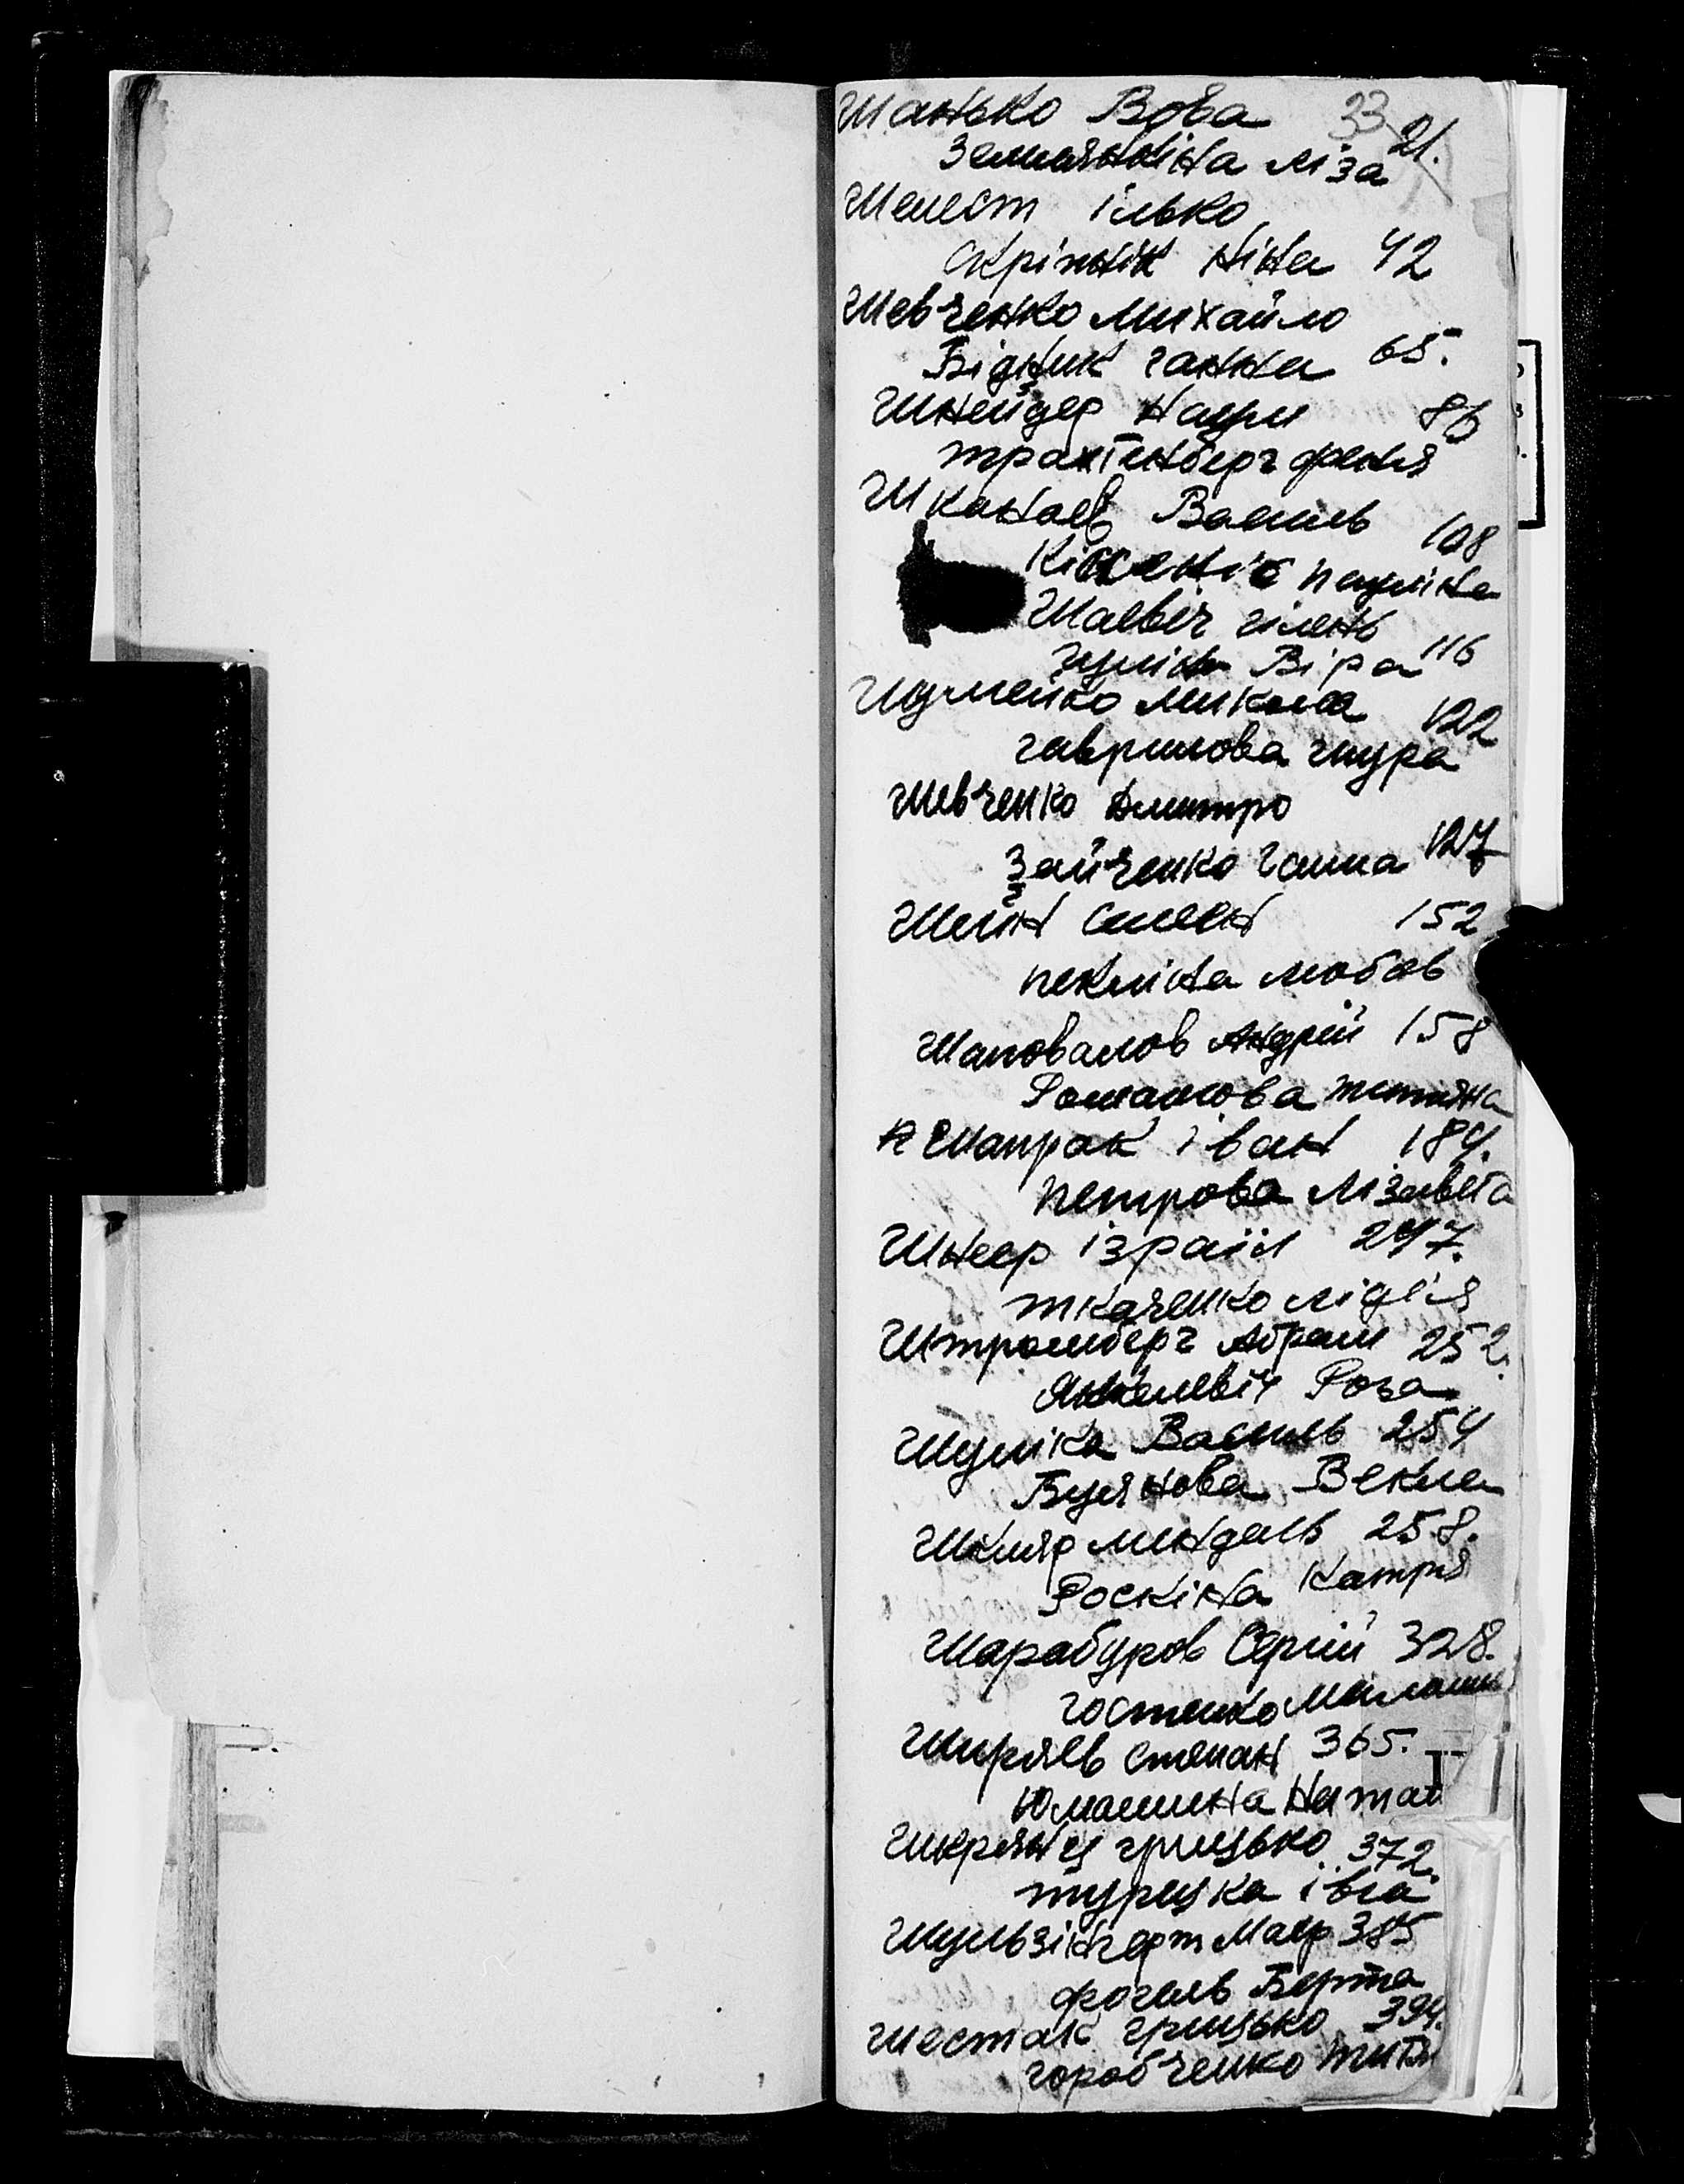 Шанько Вова 33 21.
Землянкіна Ліза
Шелест ілько
Скріпнік Ніна 42
Шевченко Михайло
Бідник ганна 65.
Шнейдер Наум 86
трахтинберг феня
Шканаєв Василь 108
пауліна
гілень
Віра 116
Шумейко Микола 122
гаврилова шура
Шевченко Дмитро
Зайченко ганна 127
Шейн 152
пекліна любов
Шаповалов Андрій 158
Романова тетяна
Шапрак іван 184.
петрова Лізавета
Шнеер ізраїл 247.
ткаченко лідія
Штромберг Абрам 252.
Янкілевіч Роза
Шуліка Василь 254
Буянова Векла
Шкляр мендель 258.
Роскіна Катря
Шарабуров Сергій 328.
гостенко
Ширяєв степан 365.
Юмашина Натал
Шкрянец грицько 372.
турецка івга
Шульзінгерт Маєр 385
фогель Берта
Шестак грицько 394.
горобченко